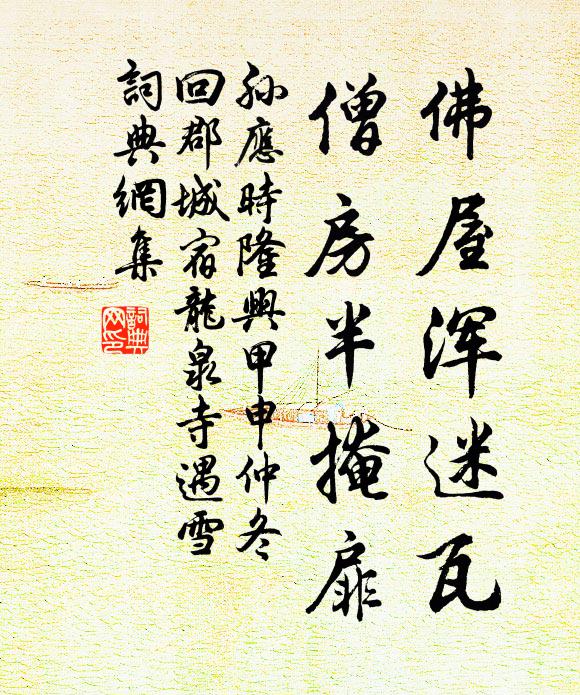 佛屋浑迷瓦
僧房半掩扉
孙應時隆興甲申仲冬
回郡城宿龍泉寺遇雪
詞典網集
詞典
网印